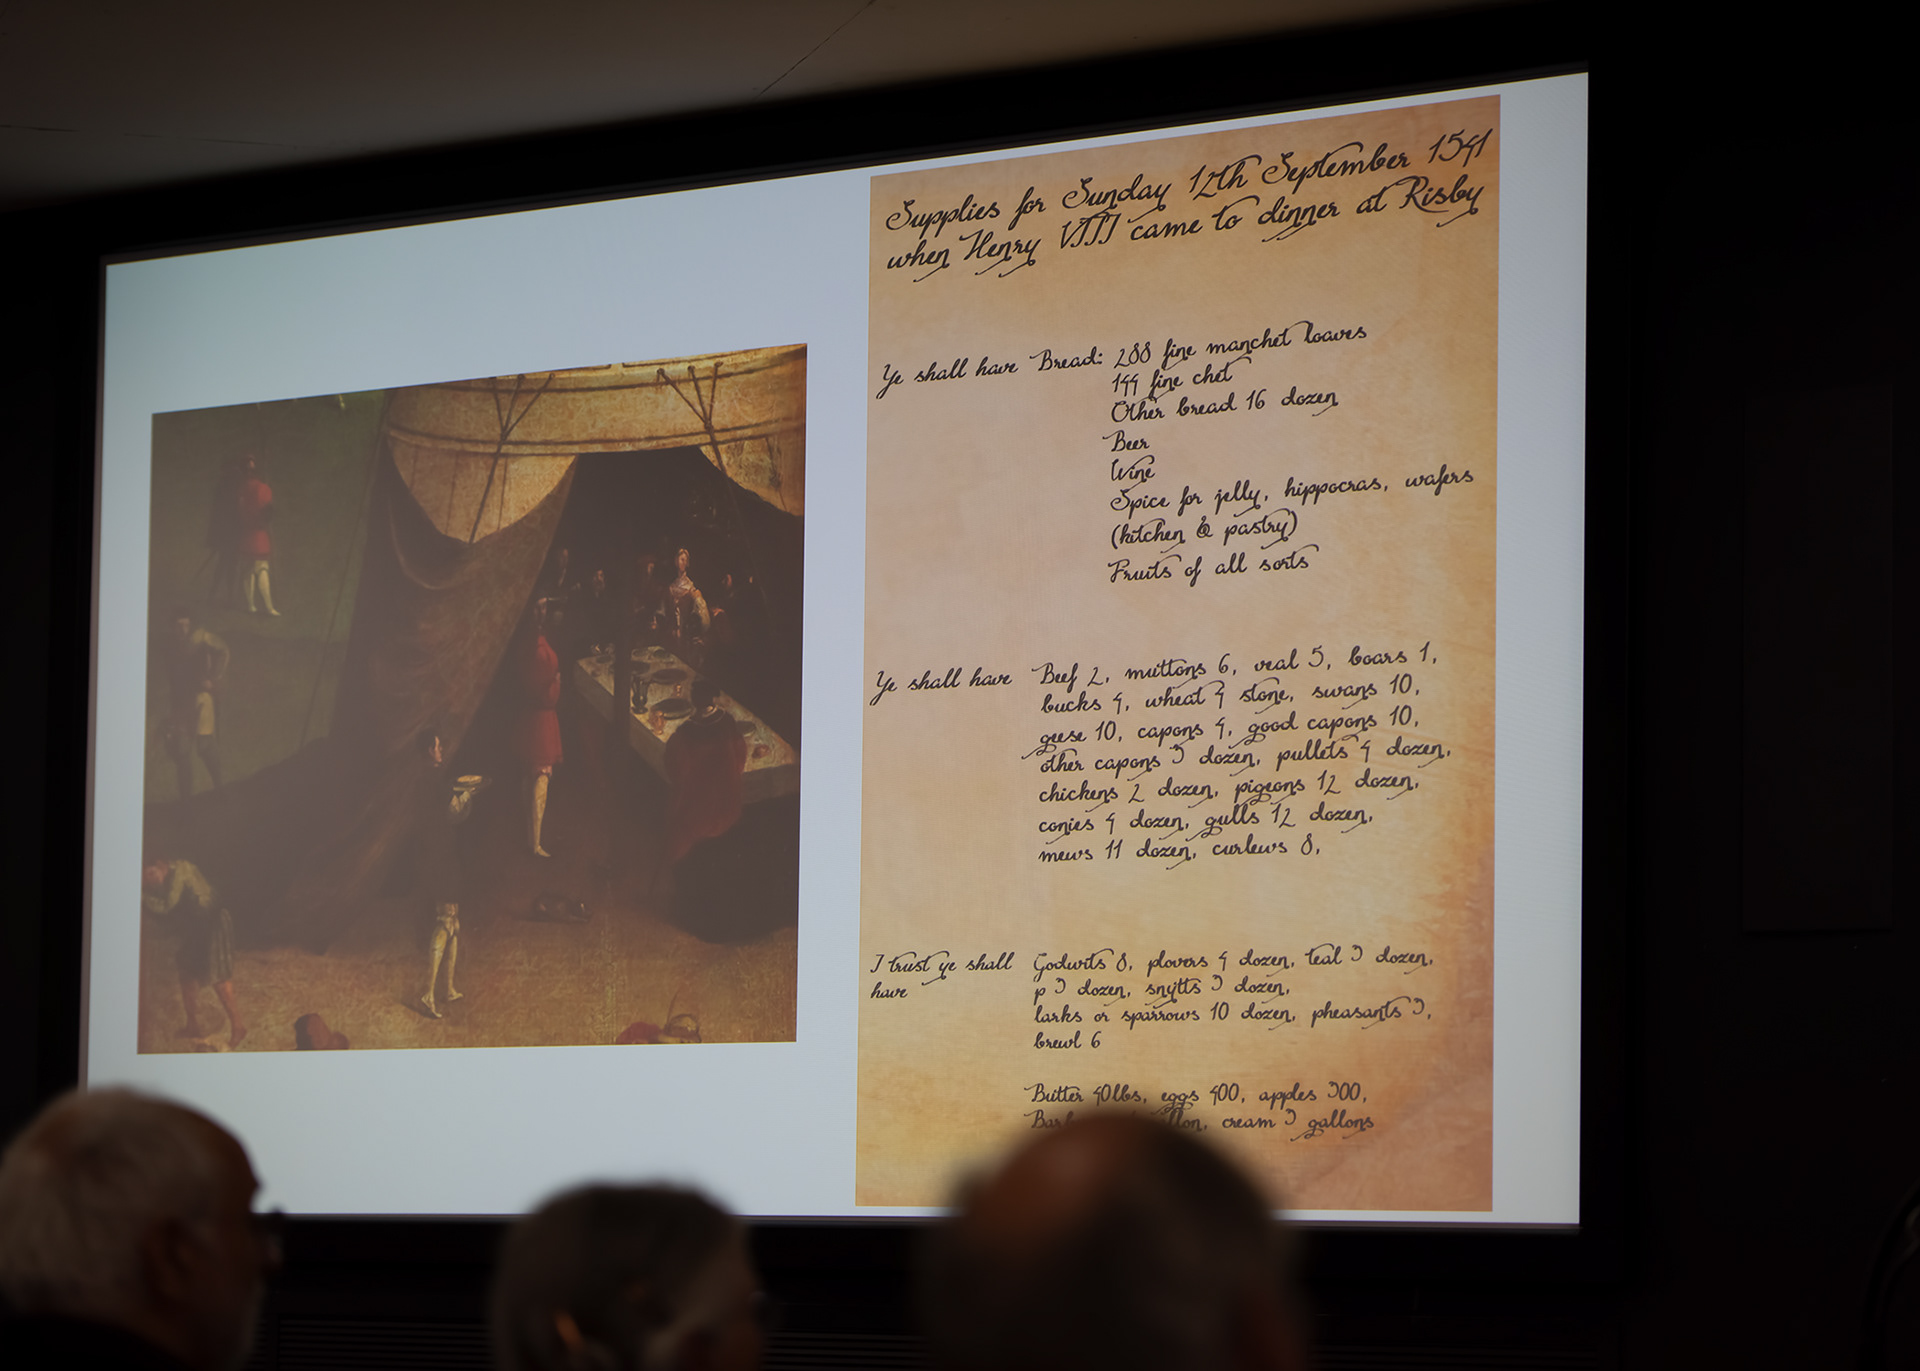 Supplies for Sunday 12th September 1541
when Henry VIII came to dinner at Risby
Ye shall have Bread: 288 fine manchet loaves
144 fine chet
Other bread 16 dozen
Beer
Wine
Spice for jelly, hippocras, wafers
(kitchen & pastry)
Fruits of all sorts
Ye shall have Beef 2, muttons 6, veal 5, boars 1,
bucks 4, wheat 4 stone, swans 10,
geese 10, capons 4, good capons 10,
other capons 3 dozen, pullets 4 dozen,
chickens 2 dozen, pigeons 12 dozen,
conies 4 dozen, gulls 12 dozen,
mews 11 dozen, curlews 8,
I trust ye shall have
Godwits 8, plovers 4 dozen, teal 3 dozen,
p 3 dozen, snytts 3 dozen,
larks or sparrows 10 dozen, pheasants 3,
brewl 6
Butter 40lbs, eggs 400, apples 300,
cream 3 gallons